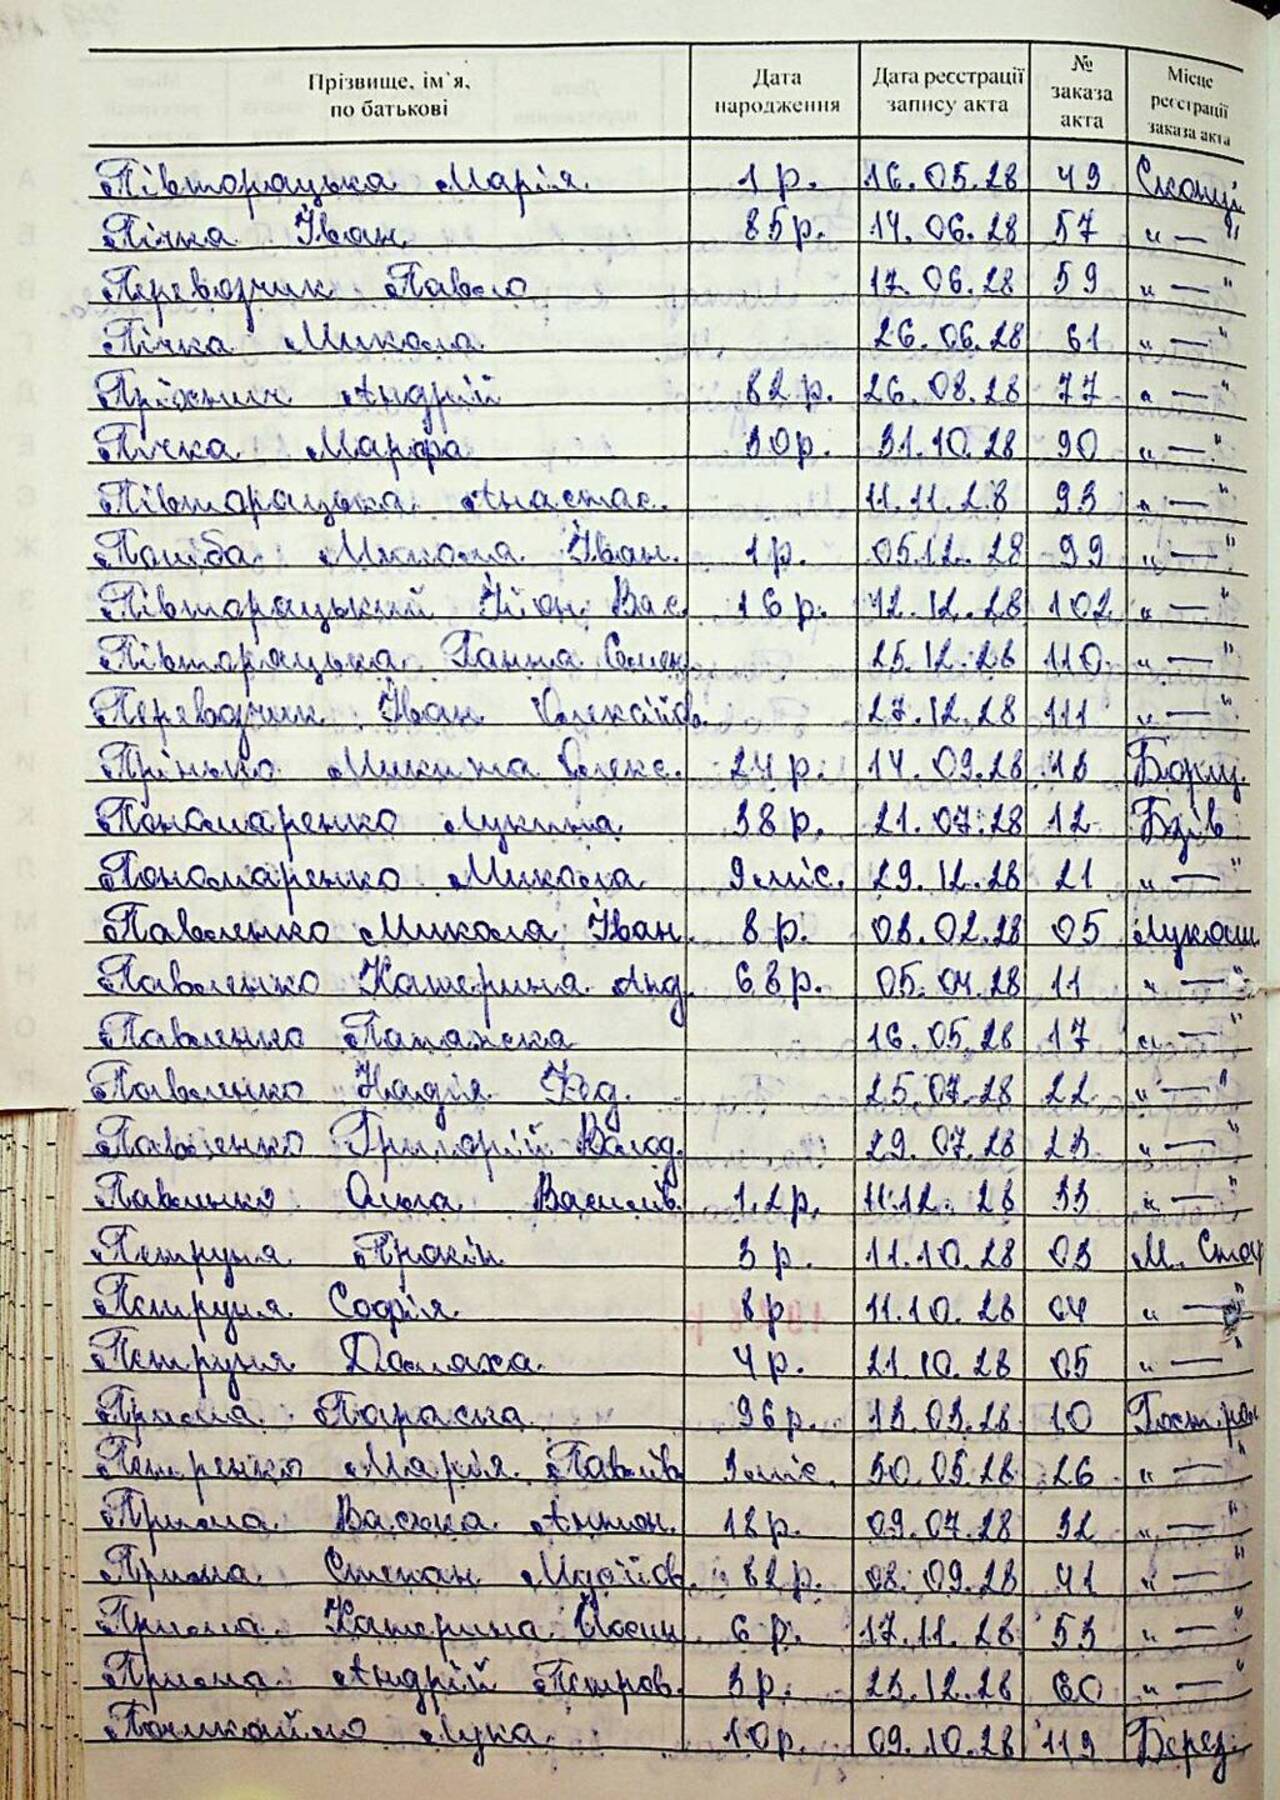 Прізвище, ім`я, по батькові Дата народження Дата реєстрації запису акта № заказа акта Місце реєстрації заказа акта
Півторацька Марія 1 р. 16.05.28 49
Пічка Іван 85 р. 14.06.28 57 „—"
Переводчик Павло 17.06.28 59 „—"
Пічка Микола 26.06.28 61 „—"
Андрій 82 р. 26.08.28 77 „—"
Пічка Марфа 30 р. 31.10.28 90 „—"
Півторацька Анастас. 11.11.28 93 „—"
Микола Іван. 1 р. 05.12.28 99 „—"
Півторацький Йон Вас. 16 р. 12.12.28 102 „—"
Півторацька Ганна Семен. 25.12.28 110 „—"
Переводчик Іван Олексійов. 27.12.28 111 „—"
Микита Олекс. 24 р. 14.09.28 18 Борщ.
Пономаренко Лукина 38 р. 21.07.28 12 Бзів
Пономаренко Микола 9 міс. 29.12.28 21 „—"
Павленко Микола Іван. 8 р. 08.02.28 05 Лукаш.
Павленко Катерина Анд. 68 р. 05.04.28 11 „—"
Павленко 16.05.28 17 „—"
Павленко Надія Фед. 25.07.28 22 „—"
Павленко Григорій Волод. 29.07.28 23 „—"
Павленко Ольга Василів. 1,2 р. 11.12.28 33 „—"
Петруня Прокіп 3 р. 11.10.28 03 М. Стар
Петруня Софія 8 р 11.10.28 04 „—"
Петруня Домаха 4 р. 21.10.28 05 „—"
Прима Параска 96 р. 13.03.28 10
Петренко Марія Павлів. 3 міс. 30.05.28 26 „—"
Прима Васька Антон. 18 р. 09.07.28 32 „—"
Прима Степан Мусійов. 82 р. 08.09.28 41 „—"
Прима Катерина Йосип. 6 р. 17.11.28 53 „—"
Прима Андрій Петров. 3 р. 23.12.28 60 „—"
Лука 10 р. 09.10.28 119 Берез.